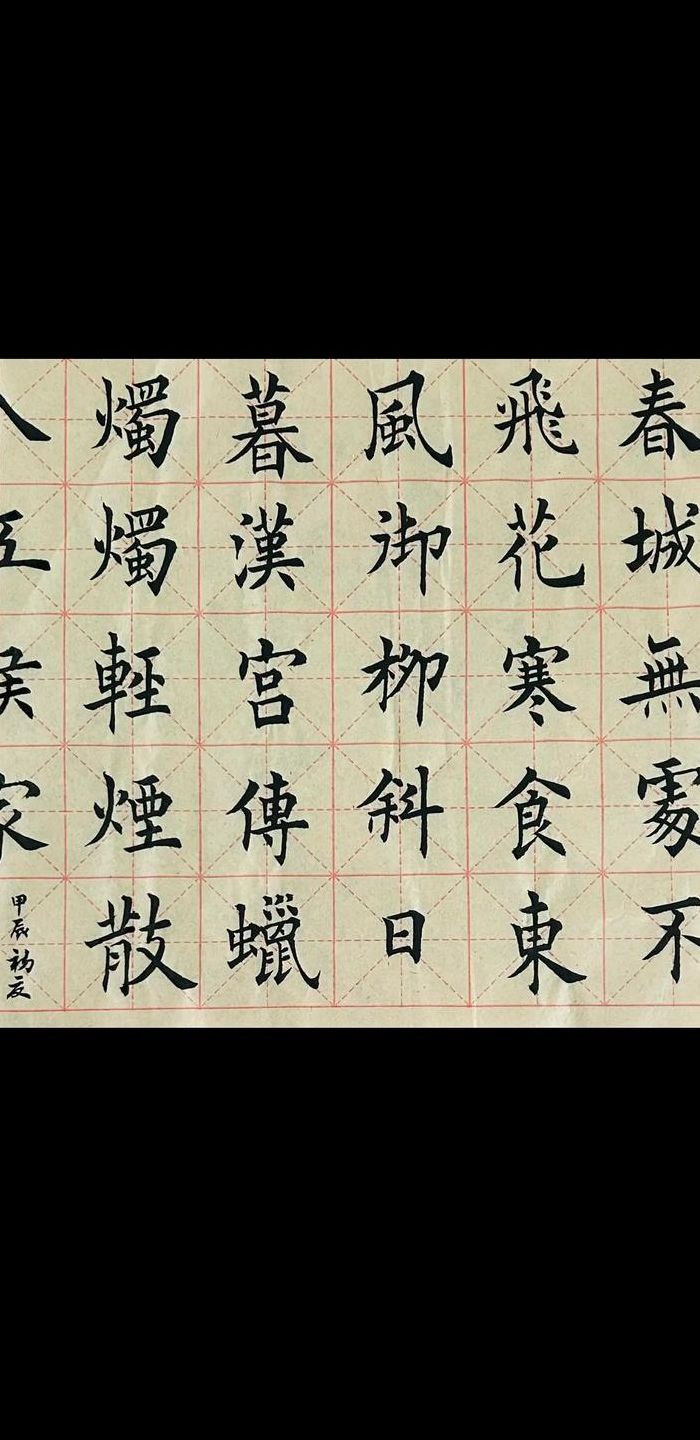 春城無處不
飛花寒食東
風御柳斜日
暮漢宮傳蠟
燭燭輕煙散
入五侯家
甲辰初夏